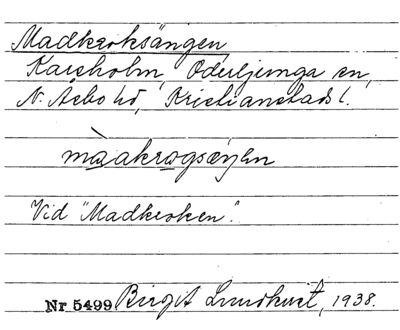 Madkroksängen
Karsholm, Oderljunga sn,
N. Åsbo hd, Kristianstads l.
màakrogsæŋən
Vid "Madkroken".
Nr 5499 Birgit Lundkvist, 1938.